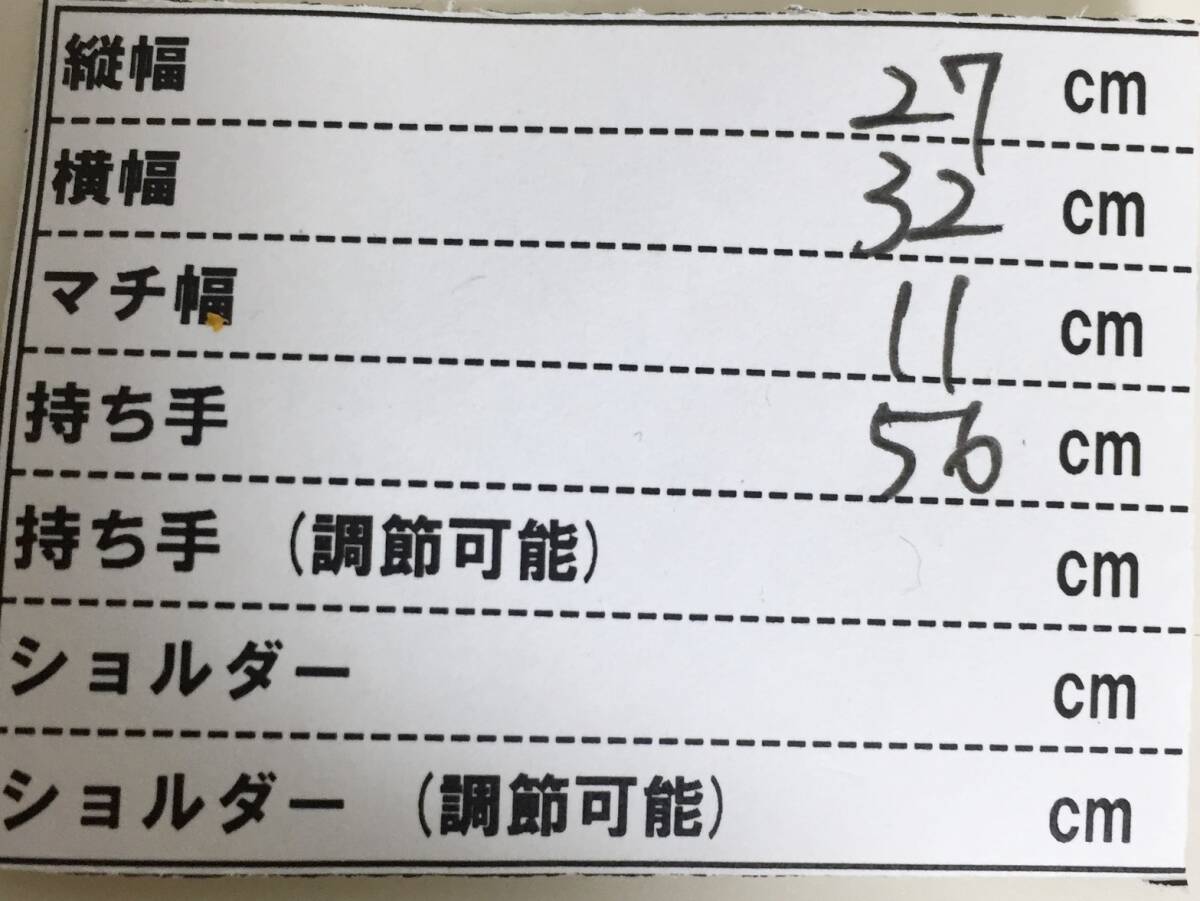 縦幅 27 cm
横幅 32 cm
マチ幅 11 cm
持ち手 56 cm
持ち手 (調節可能) cm
ショルダー cm
ショルダー (調節可能) cm